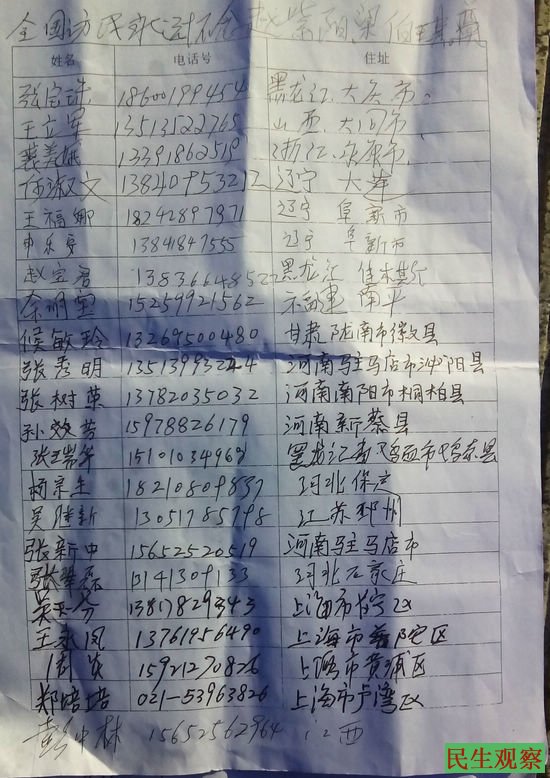 全国访民 赵紫阳 梁
姓名 电话号 住址
张宝珠 18600199454 黑龙江.大庆市.
王立军 13513522768 山西.大同市.
裴美娥 13391862519 浙江
淑文 1384095321 辽宁 大连
王福娜 18242897971 辽宁 阜新市
13841847555 辽宁 阜新市
赵宝君 138366485 黑龙江 佳木斯
余明 15259921562 福建 南平
候敏玲 13269500480 甘肃陇南市徽县
张秀明 1351399324 河南驻马店市泌阳县
张树荣 13782035032 河南南阳市桐柏县
孙效芳 15978826179 河南新蔡县
张 1510103496 黑龙江省鸡西市鸡东县
杨 18210809837 河北保定
吴陆新 13051785798 江苏邳州
张新中 15652520519 河南驻马店市
张翠磊 13141309133 河北石家庄
吴玉芬 13817829343 上海市长宁区
王永凤 13761956490 上海市普陀区
15921270826 上海市黄浦区
郑培培 021-53963826 上海市卢湾区
彭中林 15652562964 江西
民生观察